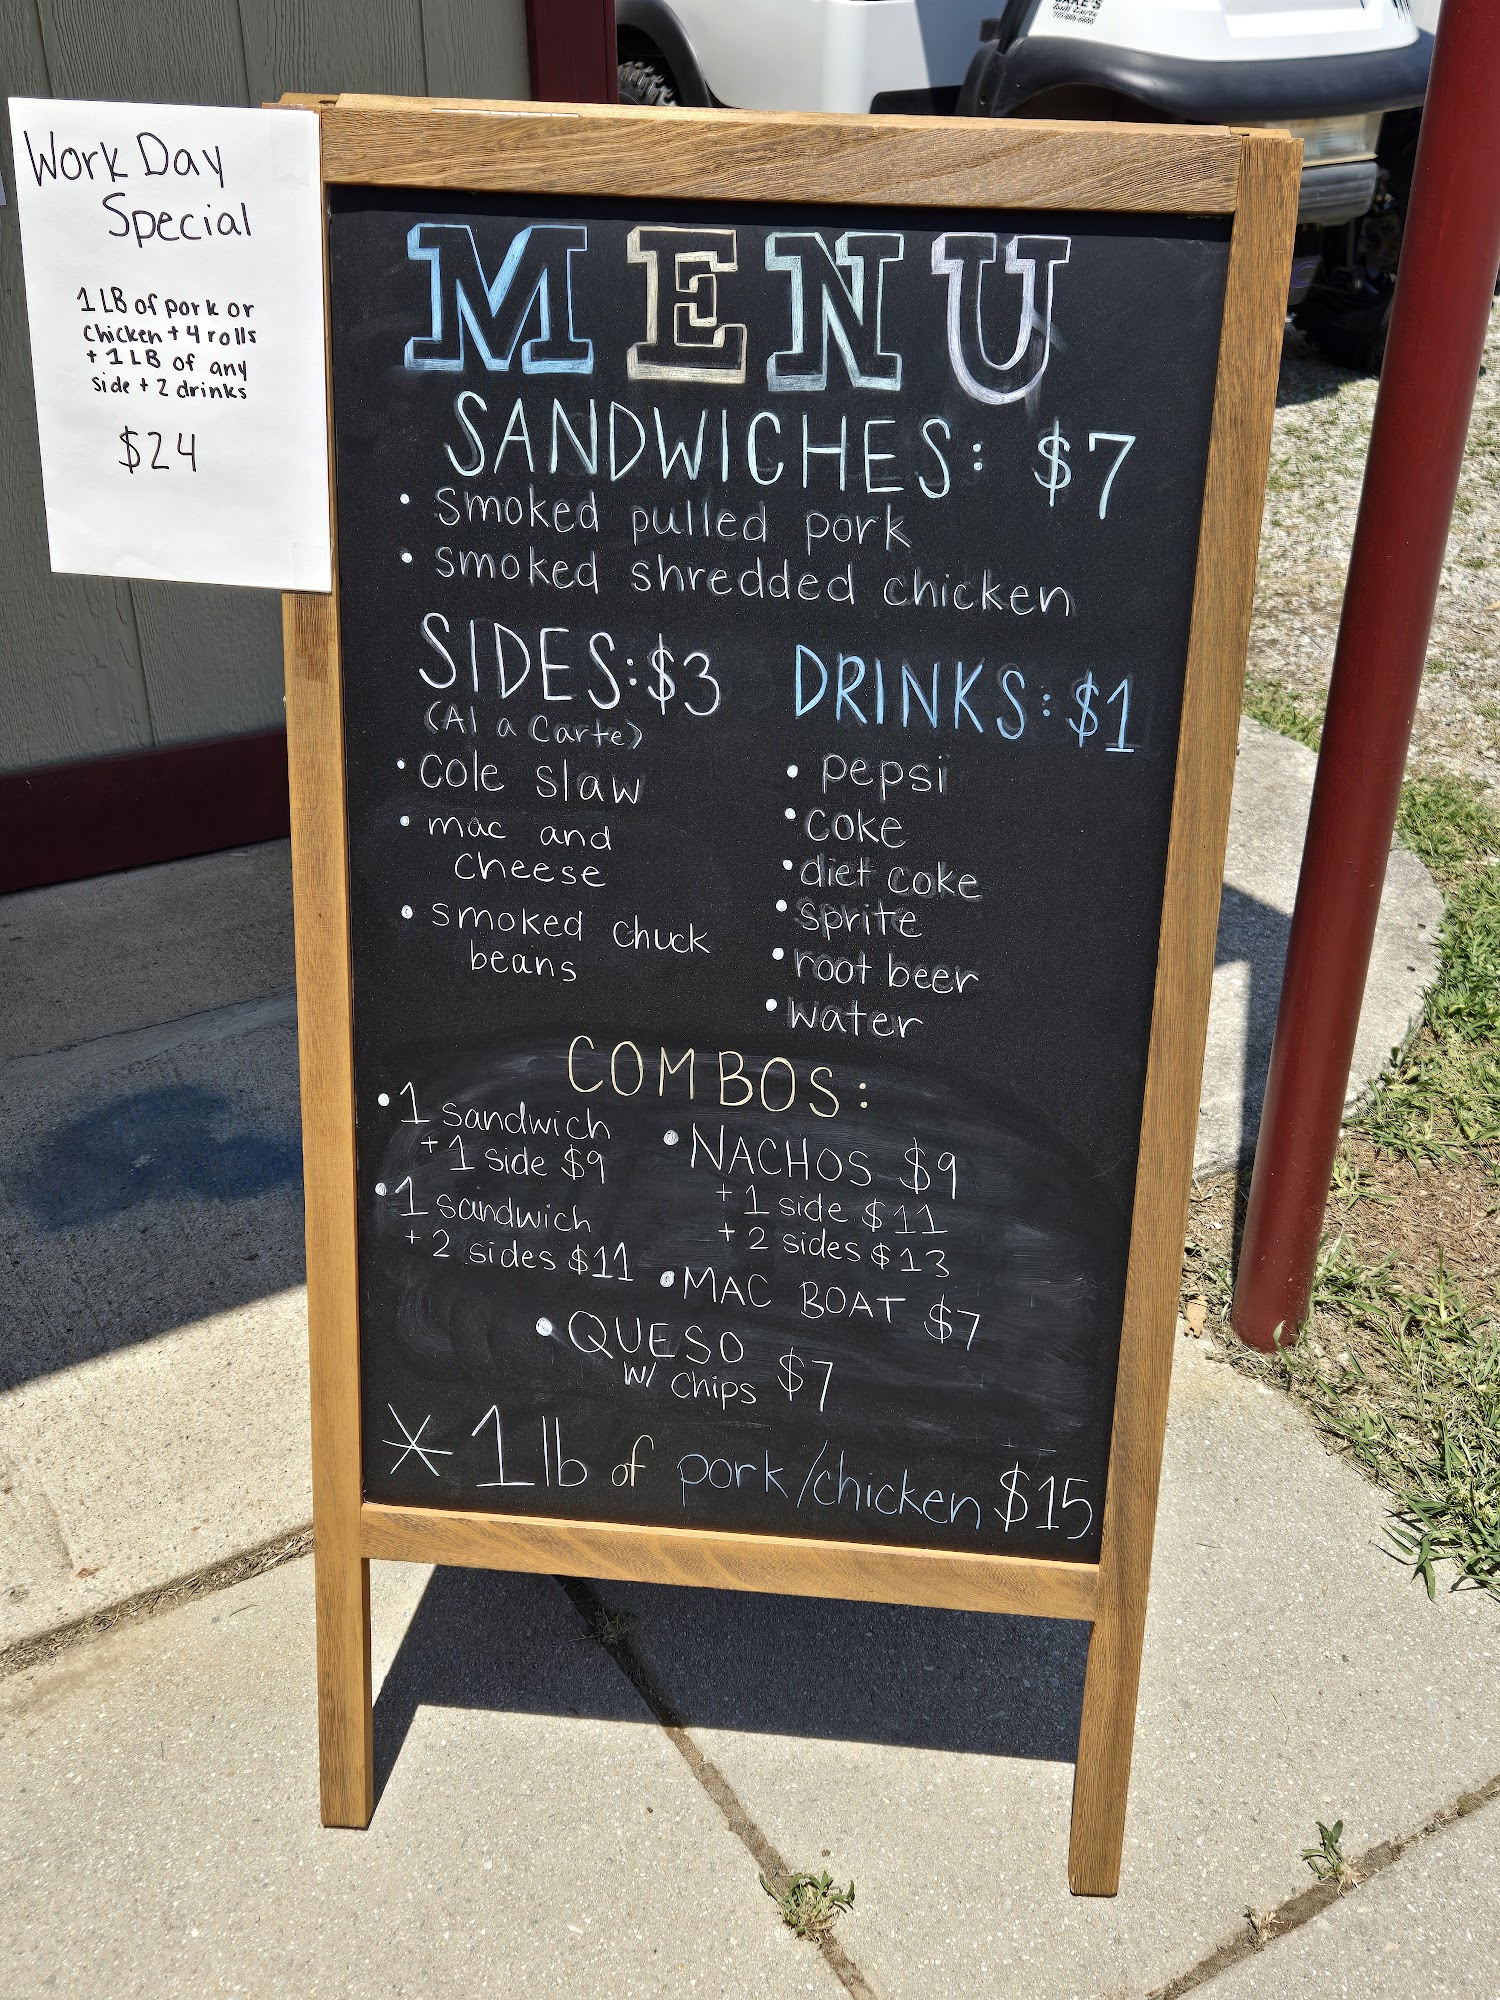 Work Day
Special
1 LB of pork or
chicken + 4 rolls
+ 1 LB of any
side + 2 drinks
$24
MENU
SANDWICHES: $7
• smoked pulled pork
• smoked shredded chicken
SIDES: $3
(Al a Carte)
• cole slaw
• mac and
cheese
• smoked chuck
beans
DRINKS: $1
• pepsi
• coke
• diet coke
• sprite
• root beer
• water
COMBOS:
• 1 sandwich
+ 1 side $9
• 1 sandwich
+ 2 sides $11
• NACHOS $9
+ 1 side $11
+ 2 sides $13
• MAC BOAT $7
• QUESO
w/ chips $7
* 1 lb of pork/chicken $15